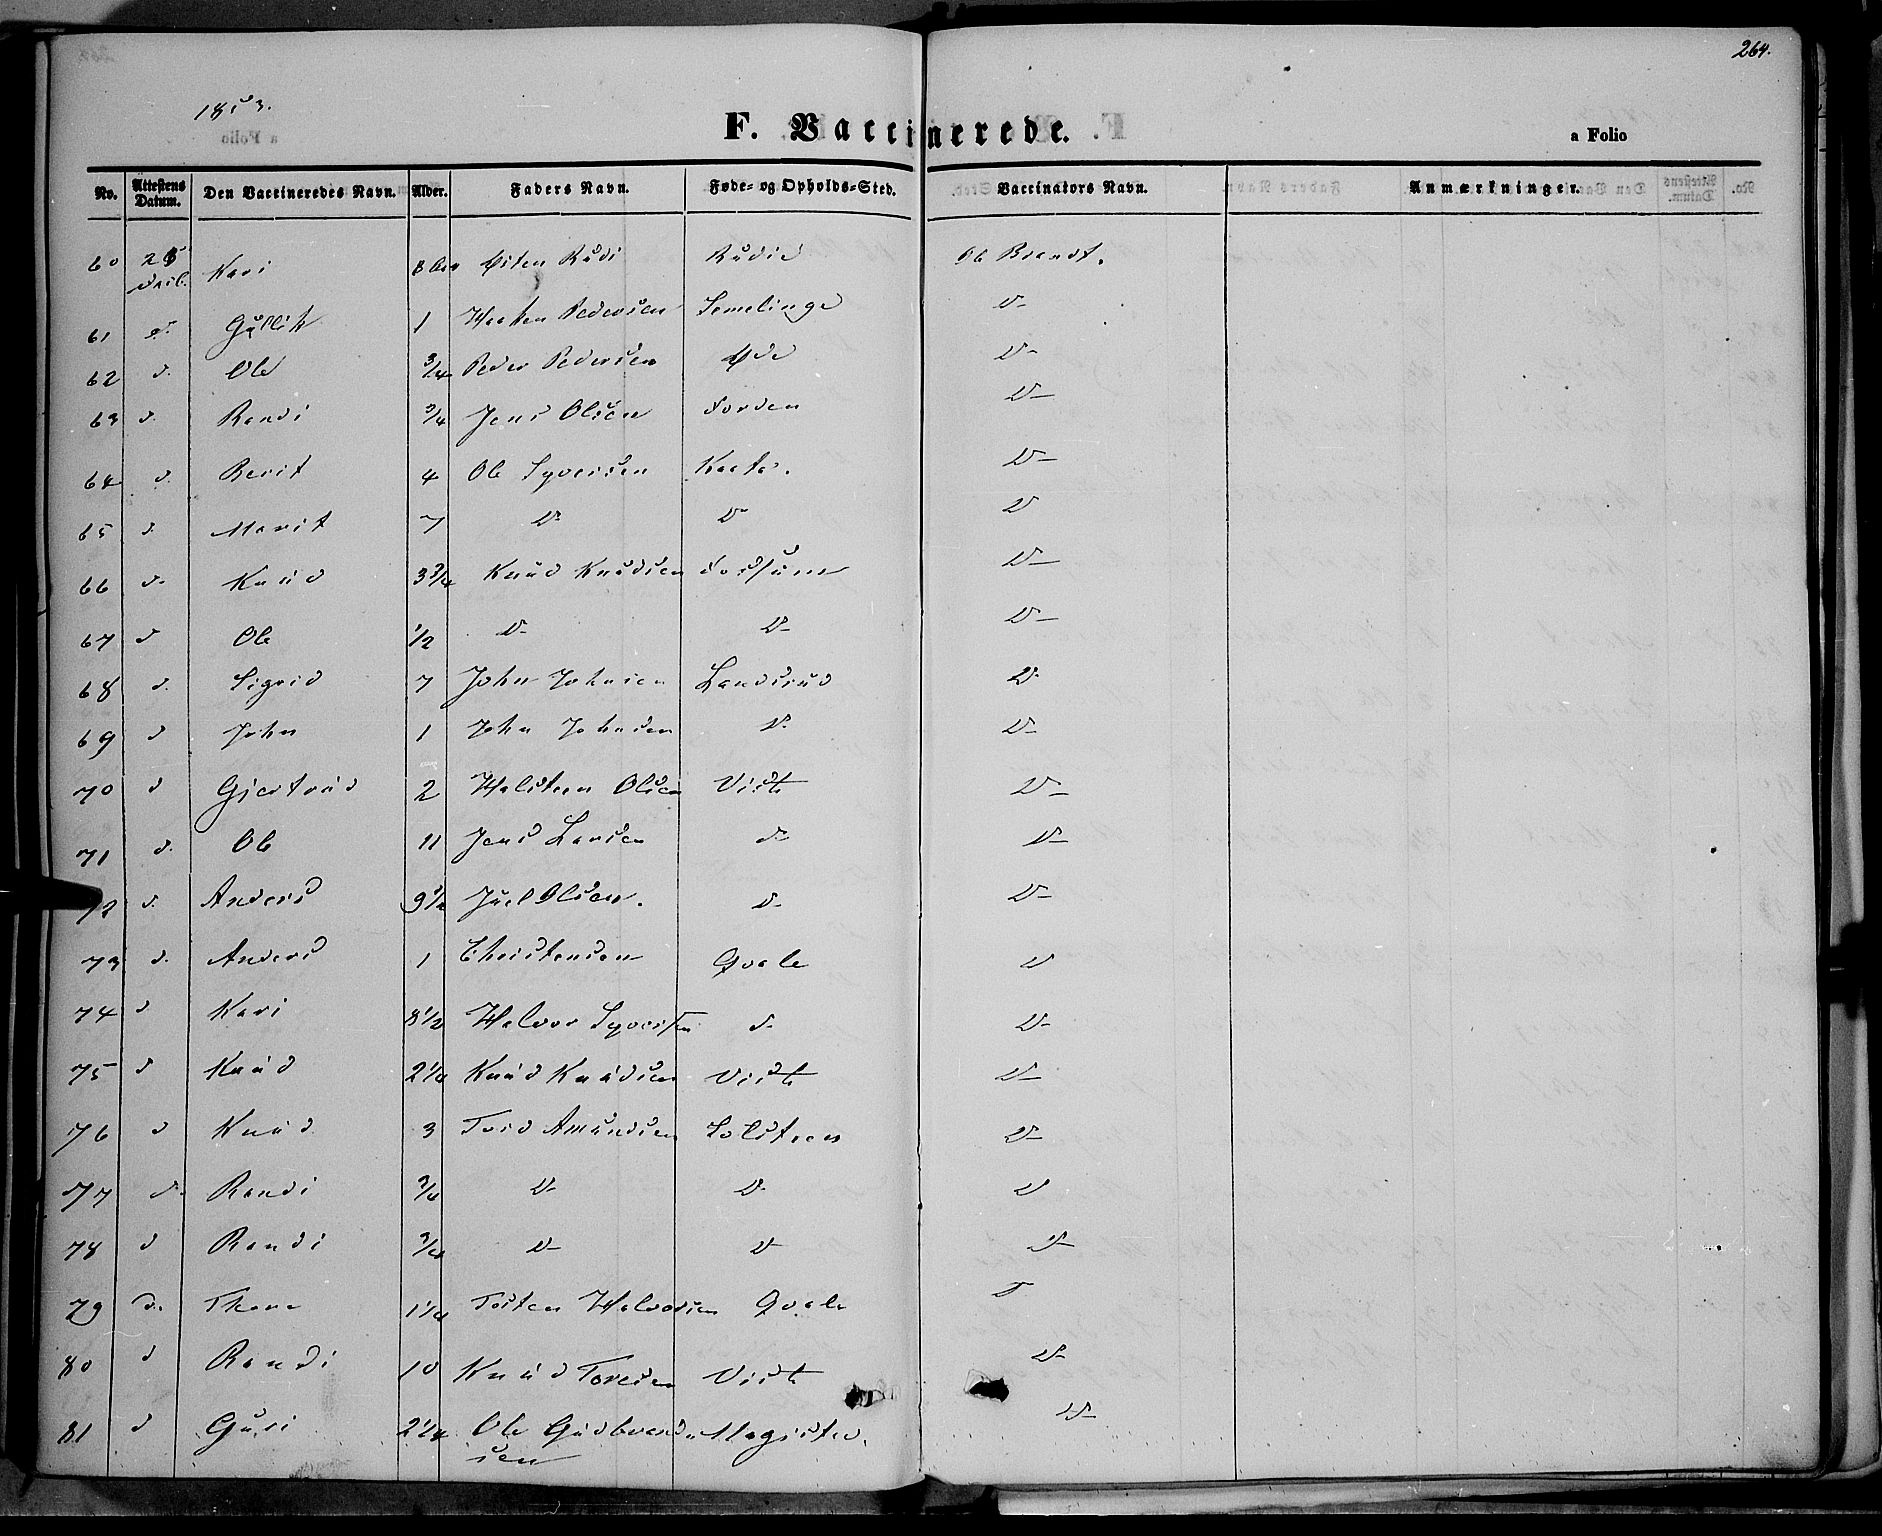 264.
1853.
F. Vaccinerede.
a Folio
No. Attestens Datum. Den Vaccineredes Navn. Alder. Faders Navn. Føde- og Opholds-Sted. Vaccinators Navn. Anmærkninger.
60 Kari Østen Rudi Rudie Ole Brandt.
61 d. Gullik 1 Haaken Pedersen Semelinge D-
62 d. Ole 3/4 Peder Pedersen Øde D-
63 d. Randi 3/4 Jens Olsen D-
64 d. Berit 4 Ole Syversen D-
65 d. Marit 7 D D D
66 d. Knud 3 3/4 Knud Knudsen D-
67 d Ole 1/2 D- D- D-
68 d. Sigrid 7 John Johnsen Landsrud D-
69 d John 1 John Johnsen D. D-
70 d Gjertrud 2 Halsteen Olsen Viste D-
71 d. Ole 11 Jens Larsen d- D-
72 d. Anders 9 1/2 Juel Olsen. d- D-
73 d. Anders 1 Christensen Qvale D
74 d Kari 8 1/2 Halvor Syversen d- D-
75 d Knud 2 1/4 Knud Knudsen Viste D-
76 d Knud 3 Tord Amundsen D-
77 d. Randi 3/4 D- D- D
78 d Randi 3/4 D- D D-
79 D. Thora 1 1/4 Tosten Halvorsen Qvale D
80 d Randi 10 Knud Toresen Viste D-
81 d Guri 2 1/4 Ole Gudbrand- Magister. D-
sen